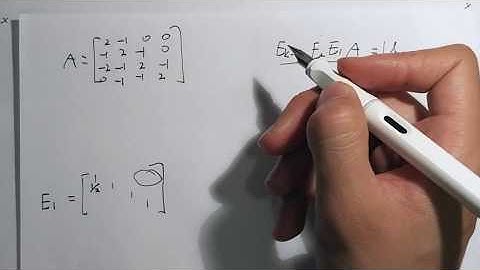 A = [2 -1 0 0
-1 2 -1 0
-2 -1 2 -1
0 -1 -1 2]
E₂ E₁ A =
E₁ = [1
½ 1
1
1]